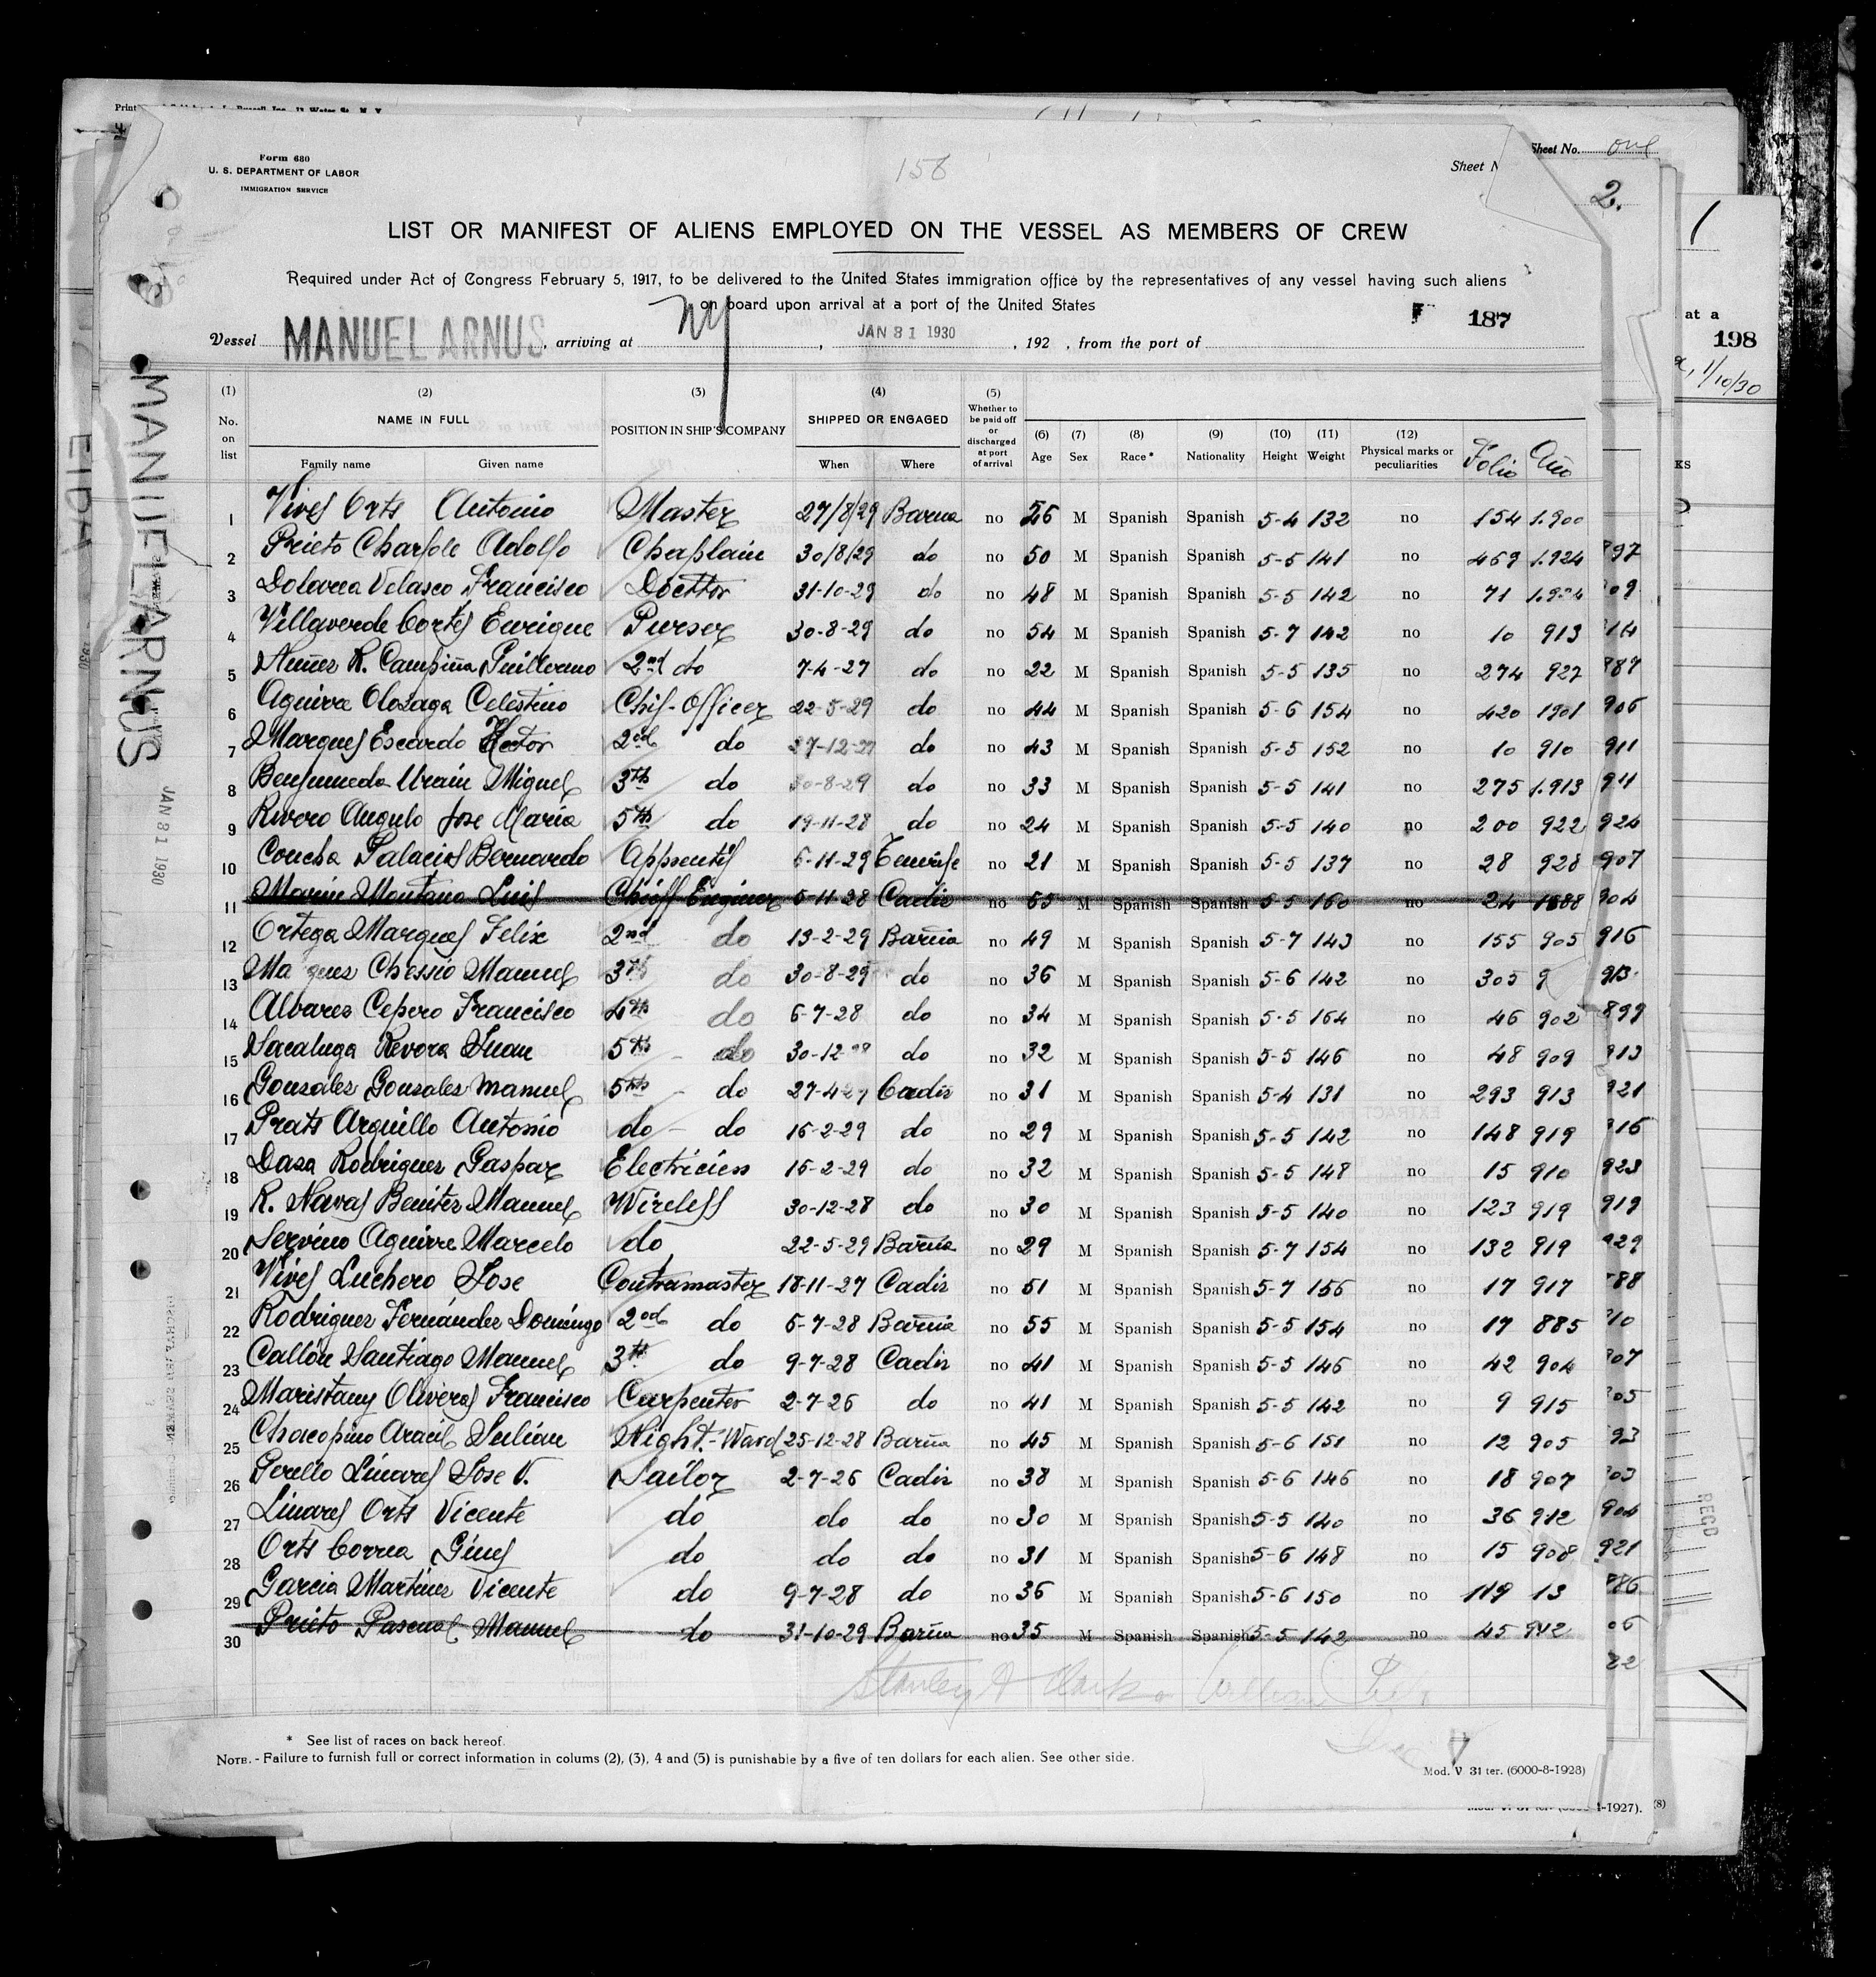 Form 680
U. S. DEPARTMENT OF LABOR
IMMIGRATION SERVICE
156
Sheet No. one
Sheet N
2.
LIST OR MANIFEST OF ALIENS EMPLOYED ON THE VESSEL AS MEMBERS OF CREW
Required under Act of Congress February 5, 1917, to be delivered to the United States immigration office by the representatives of any vessel having such aliens
on board upon arrival at a port of the United States
187
at a
198
1/10/30
Vessel MANUEL ARNUS, arriving at NY, JAN 31 1930, 192 , from the port of
(1) No. on list (2) NAME IN FULL Family name Given name (3) POSITION IN SHIP'S COMPANY (4) SHIPPED OR ENGAGED When Where (5) Whether to be paid off or discharged at port of arrival (6) Age (7) Sex (8) Race * (9) Nationality (10) Height (11) Weight (12) Physical marks or peculiarities Folio Año
1 Vives Orts Antonio Master 27/8/29 Barna no 56 M Spanish Spanish 5-4 132 no 154 1.900
2 Prieto Adolfo Chaplain 30/8/29 do no 50 M Spanish Spanish 5-5 141 no 469 1.924
3 Velasco Francisco Docttor 31-10-29 do no 48 M Spanish Spanish 5-5 142 no 71
4 Villaverde Cortés Enrique Purser 30-8-29 do no 54 M Spanish Spanish 5-7 142 no 10 913
5 Nuñez R. Campiña Guillermo 2nd do 7-4-27 do no 22 M Spanish Spanish 5-5 135 no 274 927
6 Aguirre Olozaga Celestino Chif-Officer 22-5-29 do no 44 M Spanish Spanish 5-6 154 no 420 1901
7 Marques Escardo Hector 2nd do 27-12-27 do no 43 M Spanish Spanish 5-5 152 no 10 910 911
8 Miguel 3th do 30-8-29 do no 33 M Spanish Spanish 5-5 141 no 275 1.913
9 Rivero Angulo Jose Maria 5th do 19-11-28 do no 24 M Spanish Spanish 5-5 140 no 200 922 924
10 Concha Palacios Bernardo 6-11-29 Tenerife no 21 M Spanish Spanish 5-5 137 no 28 928 907
11 Marin Montano Luis Chieff Enginer 5-11-28 Cadiz no 65 M Spanish Spanish 5-5 160 no 24 1888 904
12 Ortega Marques Felix 2nd do 13-2-29 Barna no 49 M Spanish Spanish 5-7 143 no 155 905 916
13 Ma ques Chessio Manuel 3th do 30-8-29 do no 36 M Spanish Spanish 5-6 142 no 305 9 913
14 Alvarez Cepero Francisco 4th do 6-7-28 do no 34 M Spanish Spanish 5-5 164 no 46 902 899
15 Sacaluga Revora Juan 5th do 30-12- do no 32 M Spanish Spanish 5-5 146 no 48 909 913
16 Gonzales Gonzales Manuel 5th do 27-4-27 Cadiz no 31 M Spanish Spanish 5-4 131 no 293 913 921
17 Prats Arguillo Antonio do - do 16-2-29 do no 29 M Spanish Spanish 5-5 142 no 148 919
18 Daza Rodriguez Gaspar Electricien 15-2-29 do no 32 M Spanish Spanish 5-5 148 no 15 910 923
19 R. Navas Benitez Manuel Wireless 30-12-28 do no 30 M Spanish Spanish 5-5 140 no 123 919 919
20 Servino Aguirre Marcelo do 22-5-29 Barna no 29 M Spanish Spanish 5-7 154 no 132 919 929
21 Vives Luchero Jose Contramaster 18-11-27 Cadiz no 51 M Spanish Spanish 5-7 156 no 17 917
22 Rodriguez Fernández Domingo 2nd do 5-7-28 Barna no 55 M Spanish Spanish 5-5 154 no 17 885
23 Callón Santiago Manuel 3th do 9-7-28 Cadiz no 41 M Spanish Spanish 5-5 146 no 42 904
24 Maristany Oliveras Francisco Carpenter 2-7-26 do no 41 M Spanish Spanish 5-5 142 no 9 915
25 Chacopino Aracil Julian Night.-Ward 25-12-28 Barna no 45 M Spanish Spanish 5-6 151 no 12 905
26 Perello Linares Jose V. Sailor 2-7-26 Cadiz no 38 M Spanish Spanish 5-6 146 no 18 907
27 Linares Orts Vicente do do do no 30 M Spanish Spanish 5-5 140 no 36 912 904
28 Orts Correa Gines do do do no 31 M Spanish Spanish 5-6 148 no 15 908 921
29 Garcia Martinez Vicente do 9-7-28 do no 36 M Spanish Spanish 5-6 150 no 119 13
30 Prieto Pascual Manuel do 31-10-29 Barna no 35 M Spanish Spanish 5-5 142 no 45 912
Stanley A Clark
* See list of races on back hereof.
NOTE. - Failure to furnish full or correct information in colums (2), (3), 4 and (5) is punishable by a five of ten dollars for each alien. See other side.
Mod. V 31 ter. (6000-8-1928)
4-1927). (8)
MANUEL ARNUS
JAN 31 1930
RECD